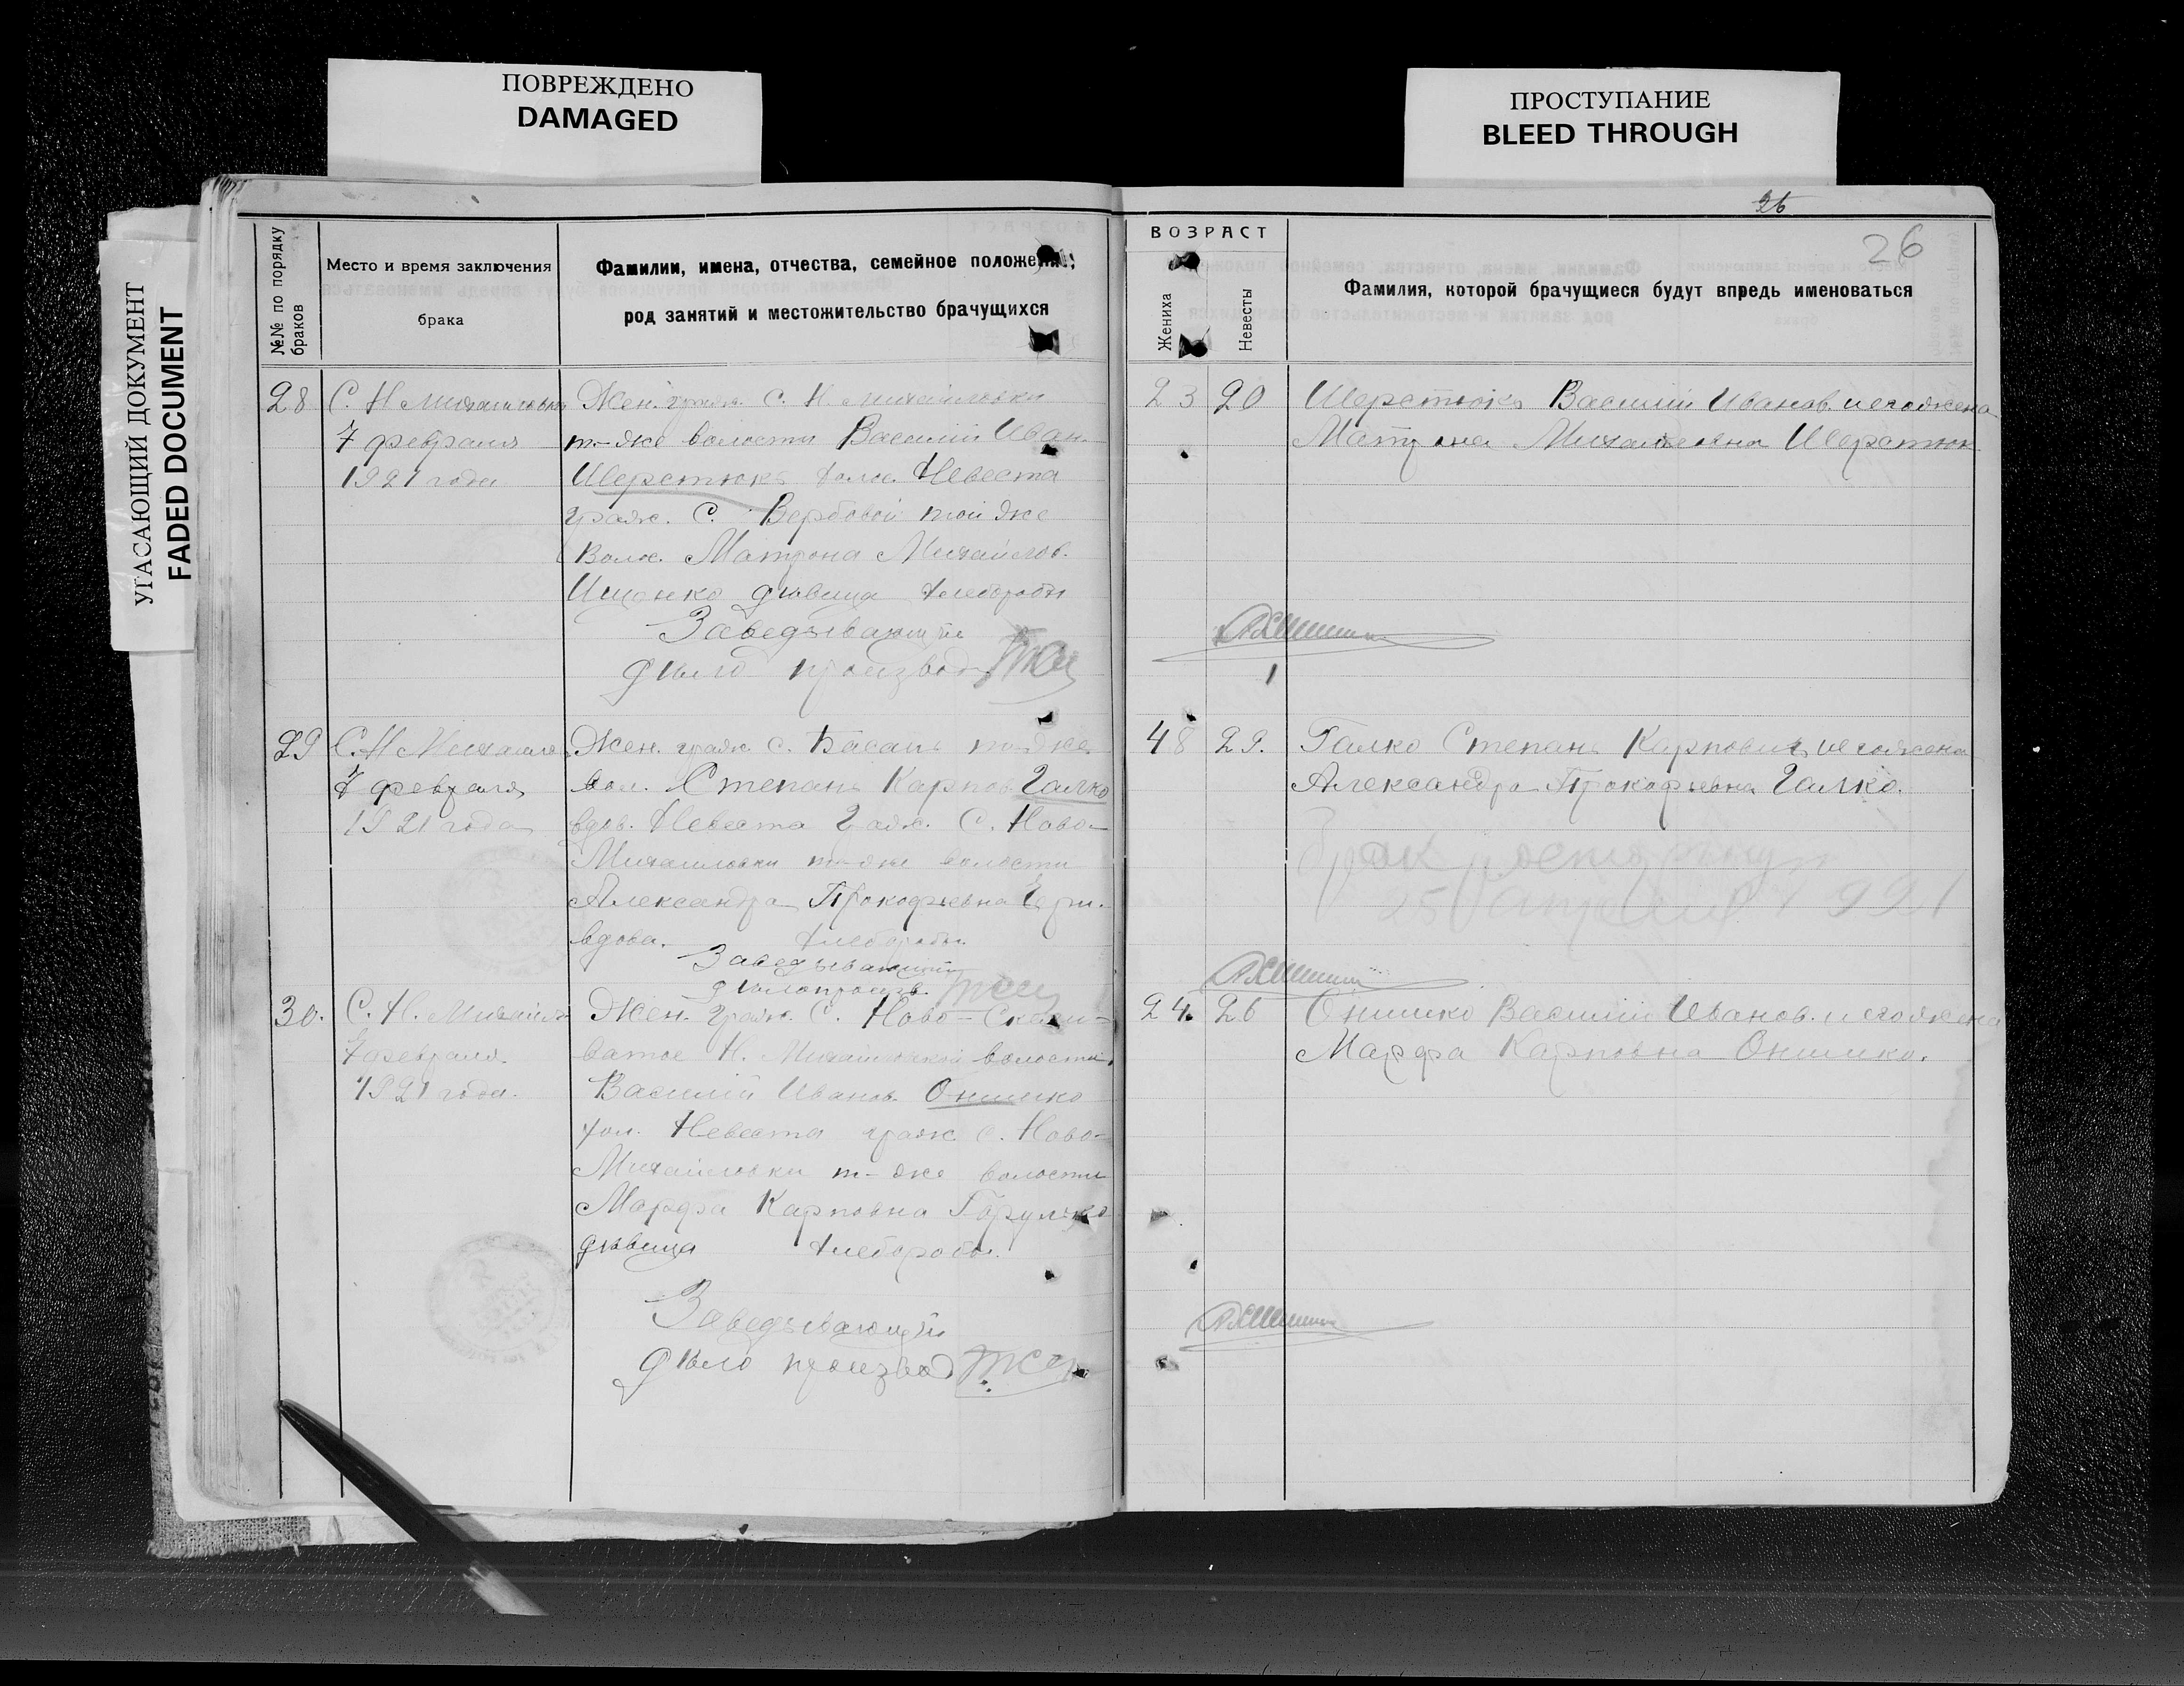 ПОВРЕЖДЕНО
DAMAGED
ПРОСТУПАНИЕ
BLEED THROUGH
УГАСАЮЩИЙ ДОКУМЕНТ
FADED DOCUMENT
26
26
№№ по порядку
браков
Место и время заключения
брака
Фамилии, имена, отчества, семейное
род занятий и местожительство брачущихся
ВОЗРАСТ
Жениха
Невесты
Фамилия, которой брачущиеся будут впредь именоваться
28
С. Н Михайловка
7 февраля
1921 года
Жен. граж. С. Н. Михайловки
т-же волости Василий Иван.
Шерстюкъ холос. Невеста
граж. С. Вербовой той же
Волос. Матрона Михайлов.
Ищенко дѣвица хлеборобы
Заведывающій
дѣло производ
23
20
Шерстюкъ Василий Иванов. и его жена
Матрона Михайловна Шерстюк
29
С. Н Михайло
7 февраля
1921 года
Жен. граж. С. Басань т-же
вол. Степанъ Карпов Галко
вдов. Невеста Граж. С. Ново-
Михайловки т-же волости
Александра Прокофьевна
вдова. хлеборобы.
Заведывающій
дѣлопроизв.
48
29.
Галко Степанъ Карповичъ и его жена
Александра Прокофьевна Галко.
брак расторгнут
25 апреля 1921
30.
С. Н. Михайл
7 февраля.
1921 года.
Жен. Граж. С. Ново-Скели-
ватое Н. Михайловской волости,
Василий Иванов. Онишко
хол. Невеста граж. С. Ново-
Михайловки т-же волости
Марфа Карповна
дѣвица хлеборобы.
Заведывающій
дѣло производ
24.
26
Онишко Василий Иванов. и его жена
Марфа Карповна Онишко.